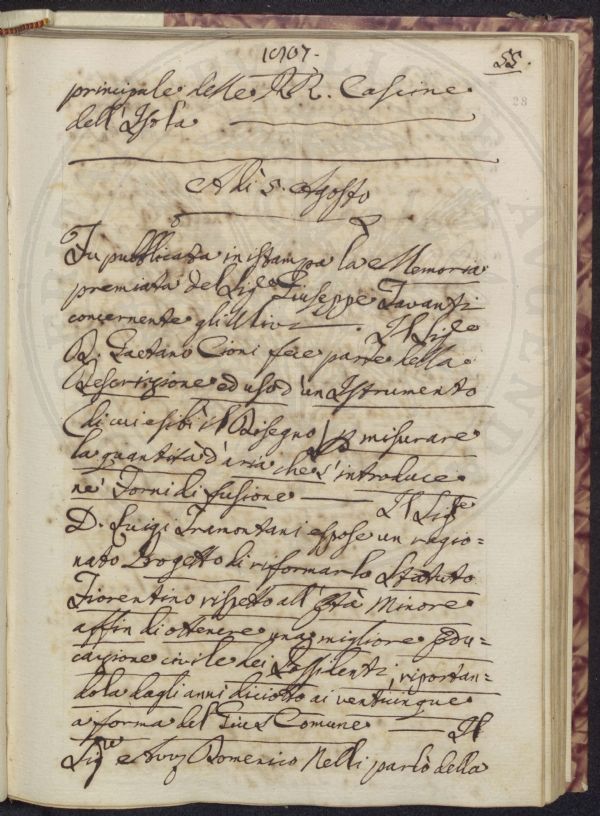 55.
28
principale delle RR. Cascine
dell'Isola
A dì 5. Agosto
Fu pubblicata in istampa la Memoria
premiata del Sig.re Giuseppe Tavanti
concernente gli Ulivi. Il Sig.re
D. Gaetano Cioni fece parte della
Descrizione ed uso d'un Istrumento
(di cui esibì il Disegno) p misurare
la quantità d'aria che s'introduce
ne' Forni di fusione Il Sig.re
D. Luigi Tramontani espose un ragio=
nato Progetto di riformar lo Statuto
Fiorentino rispetto all'Età Minore
affin di ottenere una migliore Edu=
cazione civile dei Possidenti, riportan=
dola dagli anni diciotto ai venticinque
a forma del Gius Comune Il
Sig.re Avv Domenico Nelli parlò della